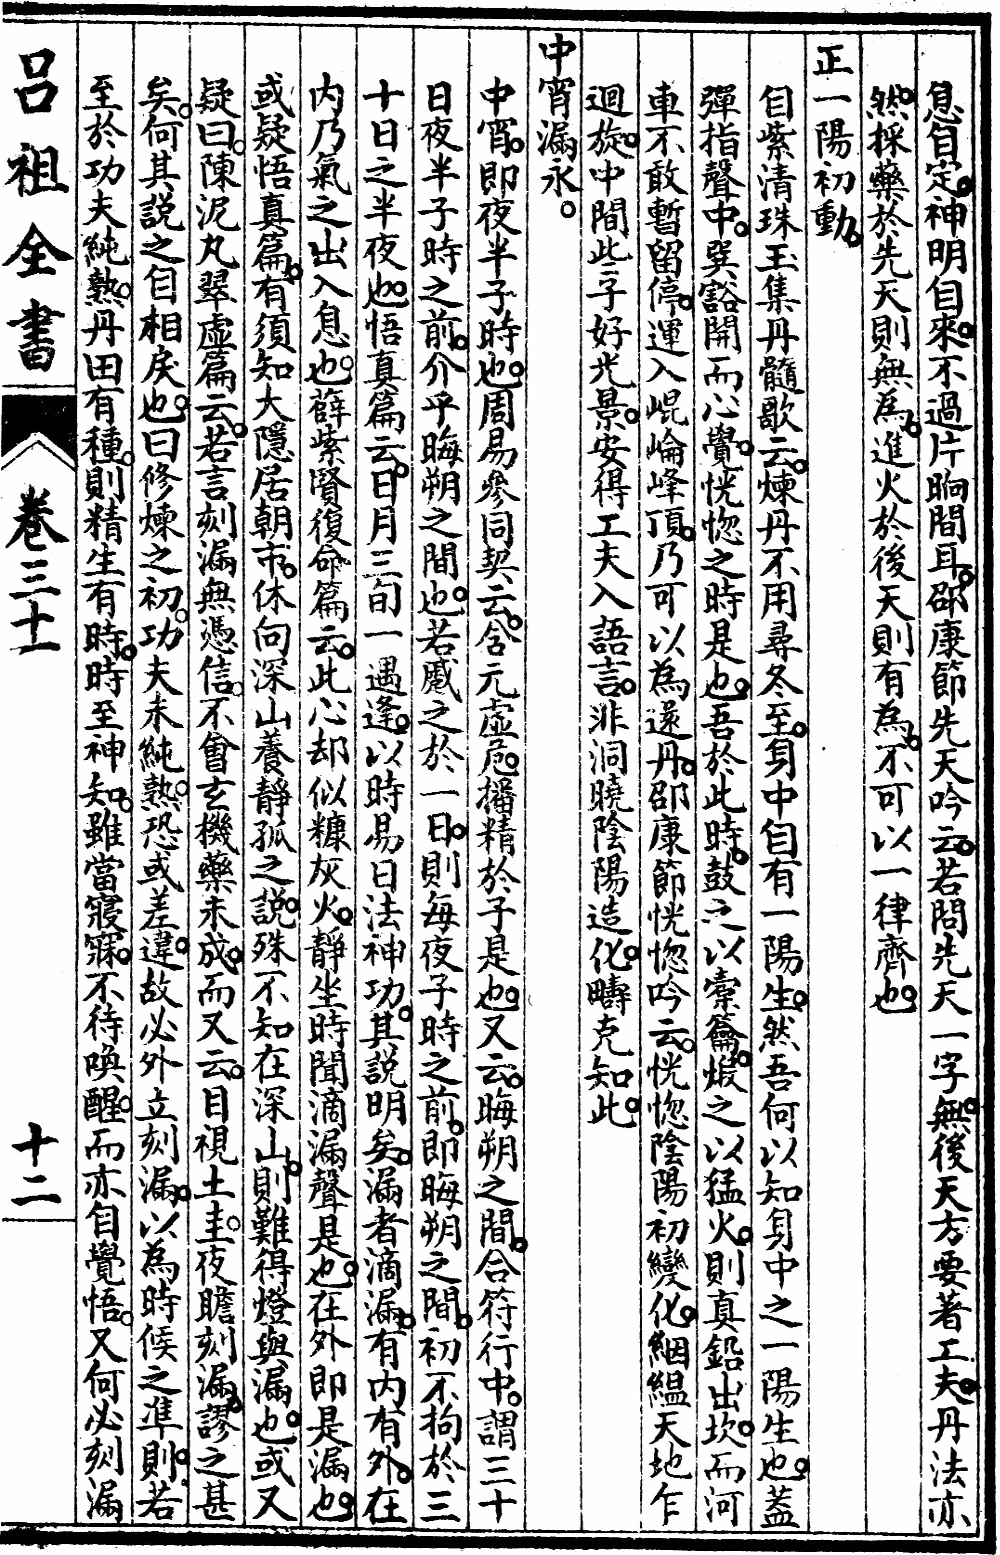 息自定。神明自來。不過片晌間耳。邵康節先天吟云。若問先天一字無。後天方要著工夫。丹法亦
然。採藥於先天則無為。進火於後天則有為。不可以一律齊也。
正一陽初動。
白紫清珠玉集丹髓歌云。煉丹不用尋冬至。身中自有一陽生。然吾何以知身中之一陽生也。蓋
彈指聲中。巽豁開而心覺。恍惚之時是也。吾於此時。鼓之以槖籥。煅之以猛火。則真鉛出坎。而河
車不敢暫留停。運入崐崙峰頂。乃可以為還丹。邵康節恍惚吟云。恍惚陰陽初變化。絪縕天地乍
迴旋。中間些子好光景。安得工夫入語言。非洞曉陰陽造化。疇克知此。
中宵漏永。
中宵。即夜半子時也。周易參同契云。含元虛危。播精於子是也。又云。晦朔之間。合符行中。謂三十
日夜半子時之前。介乎晦朔之間也。若蹙之於一日。則每夜子時之前。即晦朔之間。初不拘於三
十日之半夜也。悟真篇云。日月三旬一遇逢。以時易日法神功。其說明矣。漏者滴漏。有內有外。在
內乃氣之出入息也。薛紫賢復命篇云。此心却似糠灰火。靜坐時聞滴漏聲是也。在外即是漏也。
或疑悟真篇。有須知大隱居朝市。休向深山養靜孤之說。殊不知在深山。則難得燈與漏也。或又
疑曰。陳泥丸翠虛篇云。若言刻漏無憑信。不會玄機藥未成。而又云。目視土圭。夜瞻刻漏。謬之甚
矣。何其說之自相戾也。曰修煉之初。功夫未純熟。恐或差違。故必外立刻漏。以為時候之準則。若
至於功夫純熟。丹田有種。則精生有時。時至神知。雖當寢寐。不待喚醒。而亦自覺悟。又何必刻漏
呂祖全書
卷三十一
十二